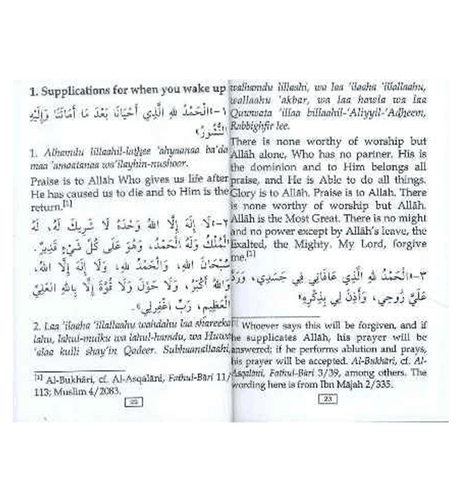 1. Supplications for when you wake up
١-«الْحَمْدُ لِلَّهِ الَّذِي أَحْيَانَا بَعْدَ مَا أَمَاتَنَا وَإِلَيْهِ
النُّشُورُ»
1. Alhamdu lillaahil-lathee 'ahyaanaa ba'da
maa 'amaatanaa wa'ilayhin-nushoor.
Praise is to Allâh Who gives us life after
He has caused us to die and to Him is the
return.[1]
٢-«لَا إِلَهَ إِلَّا اللهُ وَحْدَهُ لَا شَرِيكَ لَهُ، لَهُ
الْمُلْكُ وَلَهُ الْحَمْدُ، وَهُوَ عَلَى كُلِّ شَيْءٍ قَدِيرٌ.
سُبْحَانَ اللهِ، وَالْحَمْدُ لِلَّهِ، وَلَا إِلَهَ إِلَّا اللهُ،
وَاللهُ أَكْبَرُ، وَلَا حَوْلَ وَلَا قُوَّةَ إِلَّا بِاللهِ الْعَلِيِّ
الْعَظِيمِ، رَبِّ اغْفِرْ لِي».
2. Laa 'ilaaha 'illallaahu wahdahu laa shareeka
lahu, lahul-mulku wa lahul-hamdu, wa Huwa
'alaa kulli shay'in Qadeer. Subhaanallaahi,
[1] Al-Bukhâri, cf. Al-Asqalâni, Fathul-Bâri 11/
113; Muslim 4/2083.
walhamdu lillaahi, wa laa 'ilaaha 'illallaahu,
wallaahu 'akbar, wa laa hawla wa laa
Quwwata 'illaa billaahil-'Aliyyil-'Adheem,
Rabbighfir lee.
There is none worthy of worship but
Allâh alone, Who has no partner. His is
the dominion and to Him belongs all
praise, and He is Able to do all things.
Glory is to Allâh. Praise is to Allâh. There
is none worthy of worship but Allâh.
Allâh is the Most Great. There is no might
and no power except by Allâh's leave, the
Exalted, the Mighty. My Lord, forgive
me.[2]
٣-«الْحَمْدُ لِلَّهِ الَّذِي عَافَانِي فِي جَسَدِي، وَرَدَّ
عَلَيَّ رُوحِي، وَأَذِنَ لِي بِذِكْرِهِ»
Whoever says this will be forgiven, and if
he supplicates Allâh, his prayer will be
answered; if he performs ablution and prays,
his prayer will be accepted. Al-Bukhâri, cf. Al-
Asqalâni, Fathul-Bâri 3/39, among others. The
wording here is from Ibn Mâjah 2/335.
23